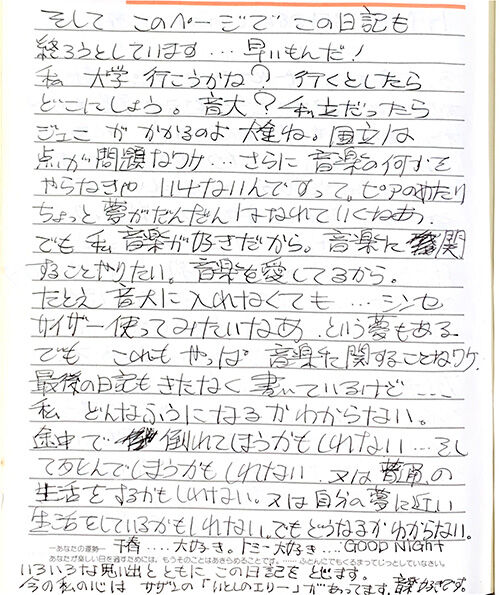 そして このページで この日記も
終ろうとしています…早いもんだ！
私 大学 行こうかな？ 行くとしたら
どこにしよう。音大？ 私立だったら
ジェニ がかかるのよ 大金ね。国立は
点が問題なワケ…さらに 音楽の何かを
やらなきゃ いけないんですって。ピアのあたり
ちょっと夢がだんだん はなれていくなあ。
でも 私 音楽が好きだから。音楽に関
することやりたい。音楽を愛してるから。
たとえ 音大に 入れなくても … シンセ
サイザー使ってみたいなあ という夢もある
でも これも やっぱ 音楽に関することなワケ。
最後の日記もきたなく 書いているけど …
私 どんなふうになるかわからない。
途中で 倒れてしまうかもしれない…そし
て死んでしまうかもしれない 又は 普通の
生活をするかもしれない。又は自分の夢に近い
生活をしているかもしれない。でもどうなるかわからない。
千春‥‥大好き。トミー大好き…GOOD NIGHT
―あなたの運勢―
あなたが楽しい日を過すためには、もうそのことはあきらめることです。……ふとんにでもくるまってじっとしていなさい。
いろいろな思い出とともに この日記を とじます。
今の私の心は サザンの「いとしのエリー」があってます。音楽好きです。